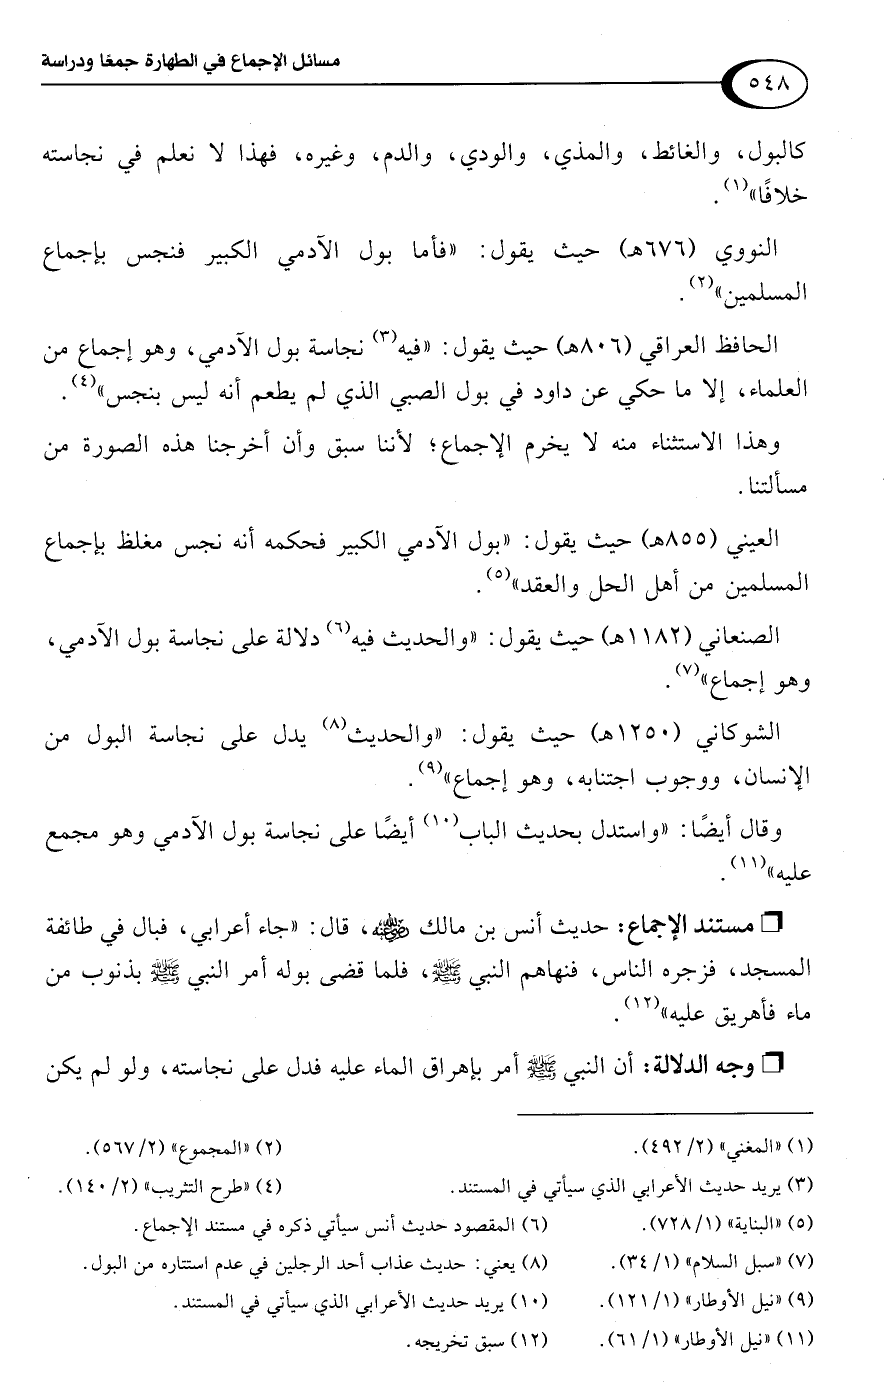 مسائل الإجماع في الطهارة جمعًا ودراسة
٥٤٨
كالبول، والغائط، والمذي، والودي، والدم، وغيره، فهذا لا نعلم في نجاسته
خلافًا»(١).
النووي (٦٧٦هـ) حيث يقول: «فأما بول الآدمي الكبير فنجس بإجماع
المسلمين»(٢).
الحافظ العراقي (٨٠٦هـ) حيث يقول: «فيه(٣) نجاسة بول الآدمي، وهو إجماع من
العلماء، إلا ما حكي عن داود في بول الصبي الذي لم يطعم أنه ليس بنجس»(٤).
وهذا الاستثناء منه لا يخرم الإجماع؛ لأننا سبق وأن أخرجنا هذه الصورة من
مسألتنا.
العيني (٨٥٥هـ) حيث يقول: «بول الآدمي الكبير فحكمه أنه نجس مغلظ بإجماع
المسلمين من أهل الحل والعقد»(٥).
الصنعاني (١١٨٢هـ) حيث يقول: «والحديث فيه(٦) دلالة على نجاسة بول الآدمي،
وهو إجماع»(٧).
الشوكاني (١٢٥٠هـ) حيث يقول: «والحديث(٨) يدل على نجاسة البول من
الإنسان، ووجوب اجتنابه، وهو إجماع»(٩).
وقال أيضًا: «واستدل بحديث الباب(١٠) أيضًا على نجاسة بول الآدمي وهو مجمع
عليه»(١١).
❒ مستند الإجماع: حديث أنس بن مالك رضي الله عنه، قال: «جاء أعرابي، فبال في طائفة
المسجد، فزجره الناس، فنهاهم النبي ﷺ، فلما قضى بوله أمر النبي ﷺ بذنوب من
ماء فأهريق عليه»(١٢).
❒ وجه الدلالة: أن النبي ﷺ أمر بإهراق الماء عليه فدل على نجاسته، ولو لم يكن
(١) «المغني» (٢/ ٤٩٢). (٢) «المجموع» (٢/ ٥٦٧).
(٣) يريد حديث الأعرابي الذي سيأتي في المستند. (٤) «طرح التثريب» (٢/ ١٤٠).
(٥) «البناية» (١/ ٧٢٨). (٦) المقصود حديث أنس سيأتي ذكره في مستند الإجماع.
(٧) «سبل السلام» (١/ ٣٤). (٨) يعني: حديث عذاب أحد الرجلين في عدم استتاره من البول.
(٩) «نيل الأوطار» (١/ ١٢١). (١٠) يريد حديث الأعرابي الذي سيأتي في المستند.
(١١) «نيل الأوطار» (١/ ٦١). (١٢) سبق تخريجه.